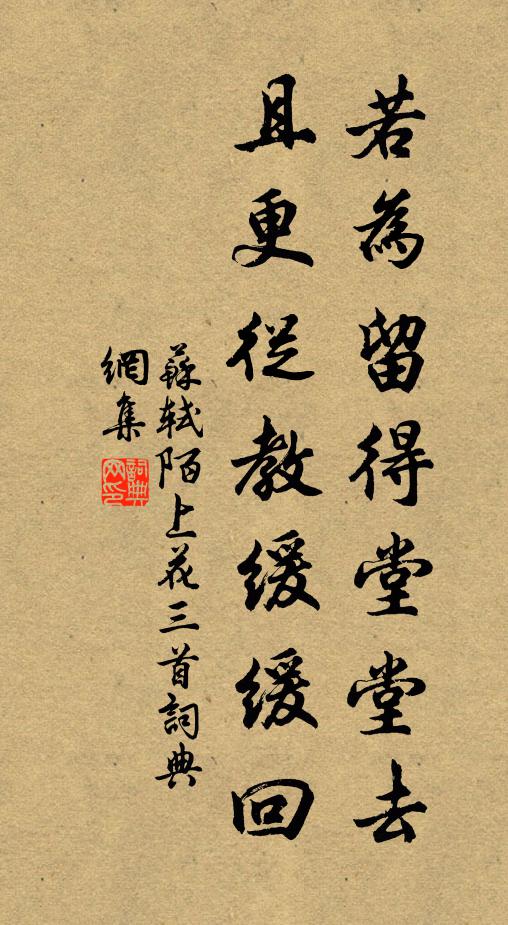 若為留得堂堂去
且更從教緩緩回
蘇軾陌上花三首詞典
網集
詞典網印